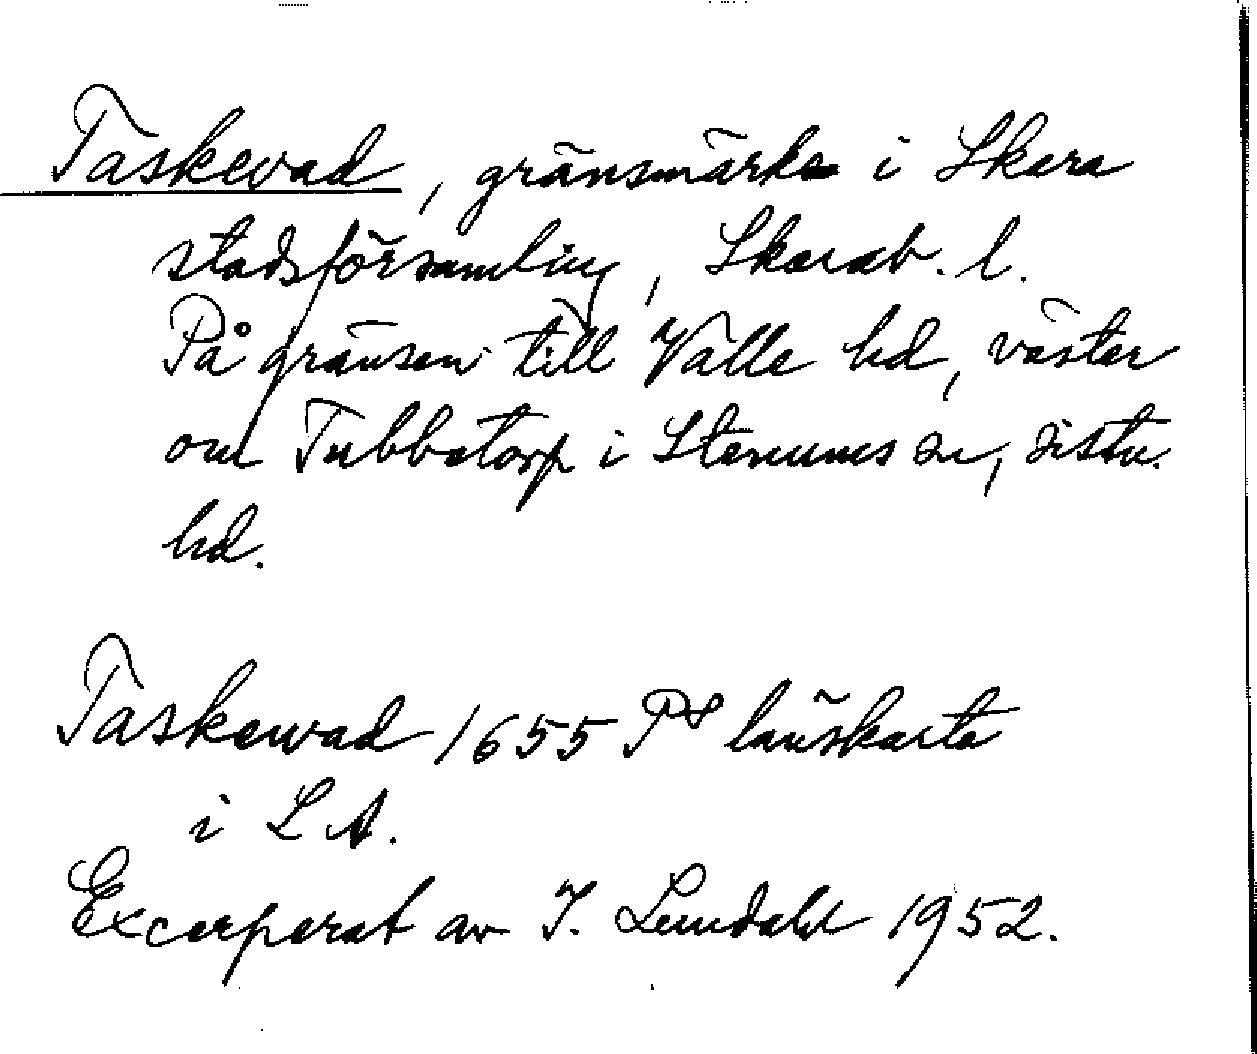 Taskevad, gränsmärke i Skara
stadsförsamling, Skarab. l.
På gränsen till Valle hd, väster
om Tubbetorp i Stenums sn, sistn.
hd.
Taskewad 1655 PS länskarta
i LA.
Excerperat av I. Lundahl 1952.